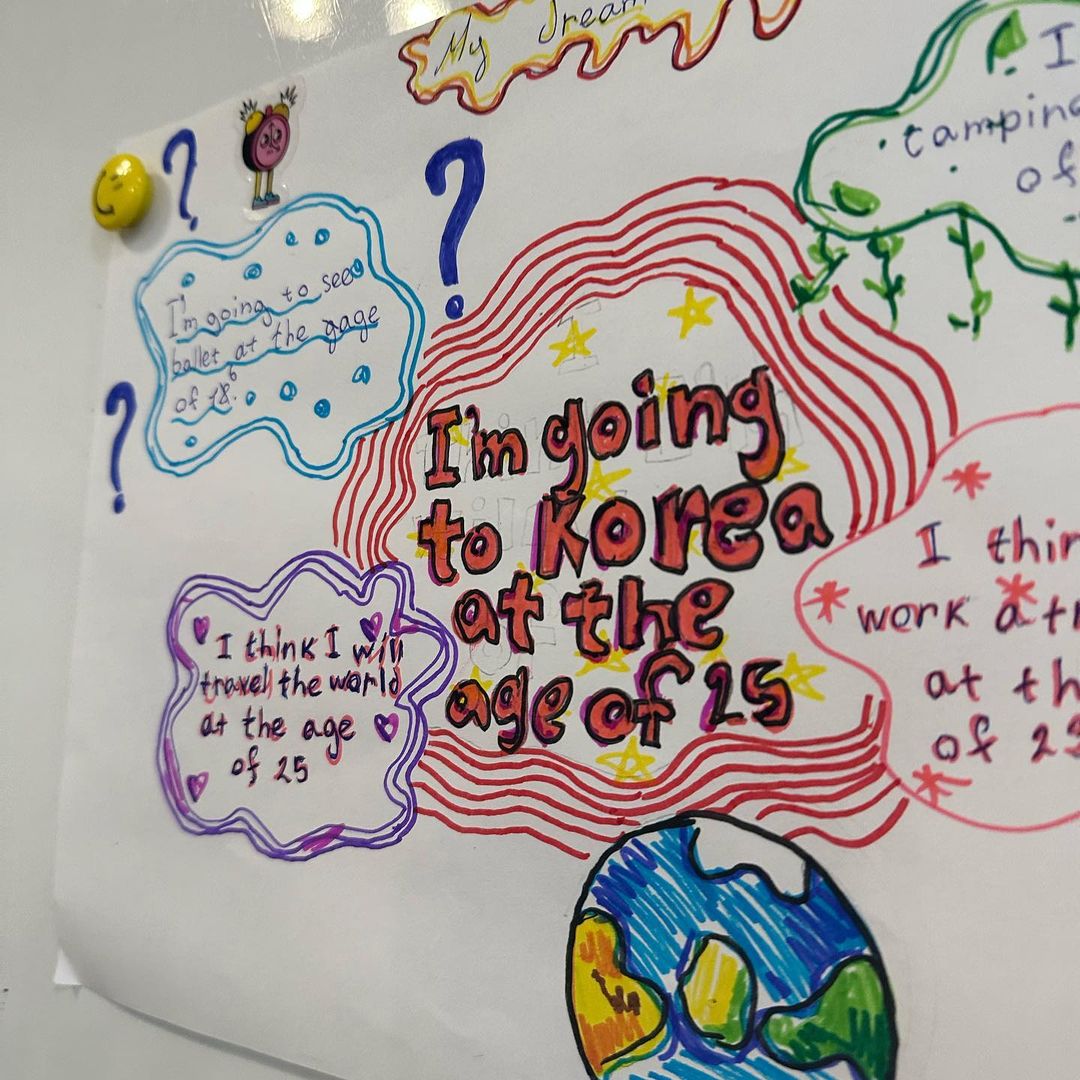 My Dream
I
tamping
of
I'm going to see
ballet at the gage
of 18.
I'm going
to Korea
at the
age of 25
I think I will
travel the world
at the age
of 25
I thin
work at
at th
of 25